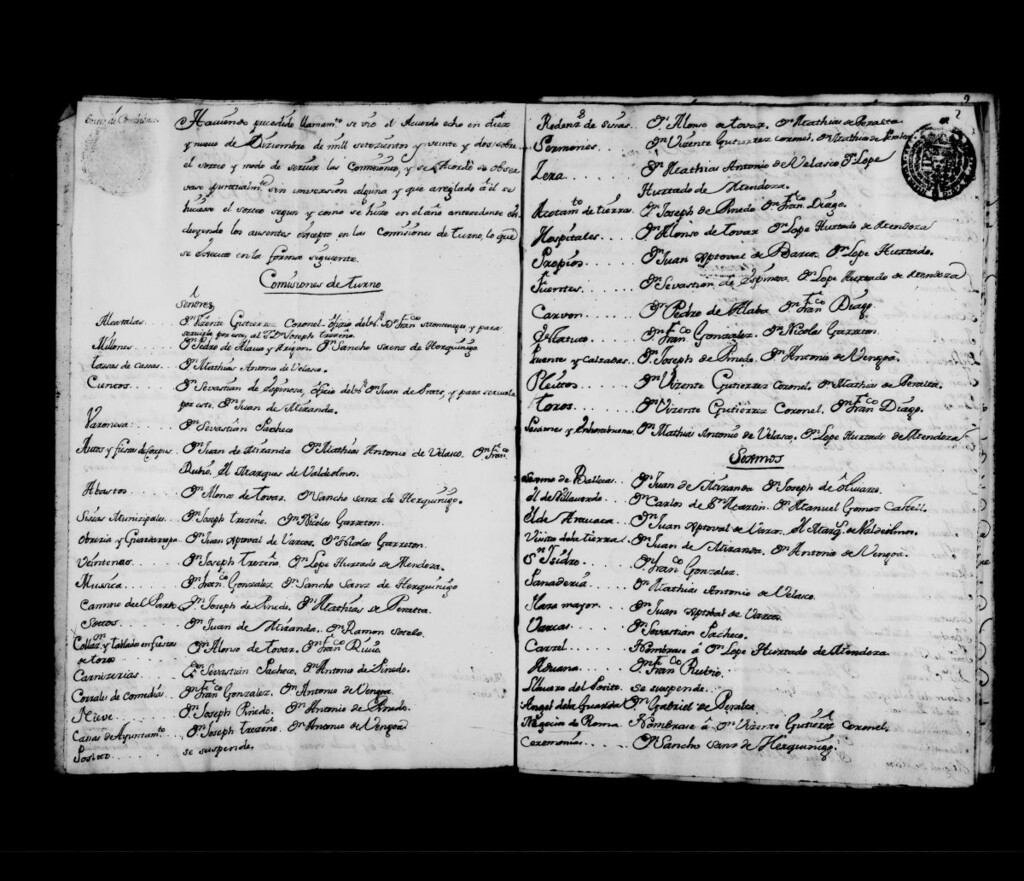 Sorteo de Comisiones
Haviendo precedido llamam.to se vió el Acuerdo echo en diez
y nueve de Diziembre de mill setezientos y veinte y dos sobre
el sorteo y modo de servir las Comisiones, y se Acordó se obser
vase puntualm.te sin conversion alguna y que arreglado á él se
huciese el sorteo segun y como se hizo en el año antezedente in
cluyendo los ausentes excepto en las Comisiones de turno, lo que
se executó en la forma siguiente.
Comisiones de turno
Señores
Alcavalas. D.n Vizente Gutierrez Coronel. oficio del S.r D.n Fran.co Montenegro y para
servirla por este, al S.r D.n Joseph treceño.
Millones. D.n Pedro de Alava y Arigon. D.n Sancho saenz de Herquiñigo
tassas de cassas. D.n Mathias Antonio de Velasco.
Cuneros. D.n Sevastian de Espinosa, oficio del S.r D.n Juan de Prats, y para servirla
por este. D.n Juan de Miranda.
Varonesa: D.n Sevastian Pacheco
Autos y fiestas del Corpus. D.n Juan de Miranda D.n Mathias Antonio de Velasco. D.n Fran.co
Rubio. El Marques de Valdeolmos.
Abastos D.n Alonso de tovar. D.n Sancho sanz de Herquiñigo.
Sisas Municipales. D.n Joseph treceño. D.n Nicolas Garreton.
Obreria y Guardarropa D.n Juan Xptoval de Varcos. D.n Nicolas Garreton.
Veintenas D.n Joseph treceño. D.n Lope Hurtado de Mendoza.
Musica D.n Fran.co Gonzalez. D.n Sancho Sanz de Herquiñigo
Camino del Pardo D.n Joseph de Pinedo. D.n Mathias de Peralta.
Sotos D.n Juan de Miranda. D.n Ramon sotelo.
Colgaz.on y tablado en fiestas D.n Alonso de tovar. D.n Fran.co Rubio
de toros
Carnizerias D.n Sevastian Pacheco. D.n Antonio de Pinedo.
Corrales de Comedias. D.n Fran.co Gonzalez. D.n Antonio de Vengoa.
Nieve D.n Joseph Pinedo. D.n Antonio de Pinedo.
Casas de Ayuntam.to D.n Joseph treceño. D.n Antonio de Vengoa
Posito se suspende.
2
Redenz.n de sisas. D.n Alonso de tovar. D.n Mathias de Peralta.
Sermones D.n Vizente Gutierrez Coronel. D.n Mathias de Peralta
Lexa D.n Mathias Antonio de Velasco D.n Lope
Hurtado de Mendoza.
Acotam.to de tierras. D.n Joseph de Pinedo D.n Fran.co Diago.
Hospitales D.n Alonso de tovar D.n Lope Hurtado de Mendoza
Propios D.n Juan Xptoval de Barco. D.n Lope Hurtado.
fuentes D.n Sevastian de Espinosa D.n Lope Hurtado de Mendoza
Carvon D.n Pedro de Alaba D.n Fran.co Diago.
Estatuto D.n Fran.co Gonzalez. D.n Nicolas Garreton.
Puente y Calzadas. D.n Joseph de Pinedo. D.n Antonio de Vengoa.
Pleitos D.n Vizente Gutierrez Coronel. D.n Mathias de Peralta.
Toros D.n Vizente Gutierrez Coronel. D.n Fran.co Diago.
Pesames y Enhorabuenas. D.n Mathias Antonio de Velasco. D.n Lope Hurtado de Mendoza
Sexmos
Sexmo de Ballecas. D.n Juan de Miranda D.n Joseph de Olivares.
El de Villaverde. D.n Carlos de S.n Martin. D.n Manuel Gomez Castell.
El de Aravaca D.n Juan Xptoval de Varco. El Marq.s de Valdeolmos.
Visita dela tierra D.n Juan de Miranda. D.n Antonio de Vengoa.
S.n Isidro D.n Fran.co Gonzalez.
Panaderia D.n Mathias Antonio de Velasco.
Plaza mayor. D.n Juan Xptobal de Varcos
Vascas D.n Sevastian Pacheco.
Cartel Nombrase á D.n Lope Hurtado de Mendoza
Aduana D.n Fran.co Rubio.
Llavero del Posito se suspende.
Angel dela Guarda D.n Gabriel de Peralta
Negocios de Roma Nombrase á D.n Vizente Gutierrez Coronel.
Ceremonias D.n Sancho sanz de Herquiñigo.